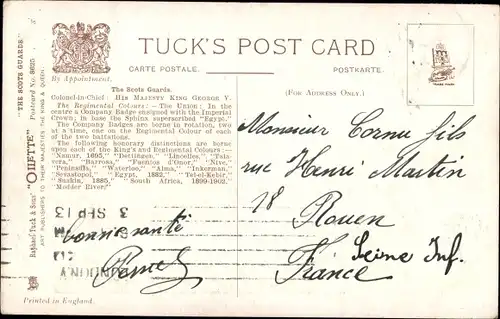 TUCK'S POST CARD
CARTE POSTALE.
POSTKARTE.
By Appointment.
(FOR ADDRESS ONLY.)
The Scots Guards.
Colonel-in-Chief: HIS MAJESTY KING GEORGE V.
The Regimental Colours:— The Union; In the
centre a Company Badge ensigned with the Imperial
Crown; in base the Sphinx superscribed "Egypt."
The Company Badges are borne in rotation, two
at a time, one on the Regimental Colour of each
of the two battalions.
The following honorary distinctions are borne
upon each of the King's and Regimental Colours:—
"Namur, 1695," "Dettingen," "Lincelles," "Tala-
vera," "Barrosa," "Fuentes d'Onor," "Nive,"
"Peninsula," "Waterloo," "Alma," "Inkerman,"
"Sevastopol," "Egypt, 1882," "Tel-el-Kebir,"
"Suakin, 1885," "South Africa, 1899-1902,"
"Modder River."
"THE SCOTS GUARDS."
Postcard No. 8625
Raphael Tuck & Sons' "OILETTE"
ART PUBLISHERS TO THEIR MAJESTIES THE KING & QUEEN.
TRADE MARK
3 SEP 13
LONDON
Bonne santé
Monsieur Cornu fils
rue Henri Martin
18
Rouen
Seine Inf.
France
Printed in England.